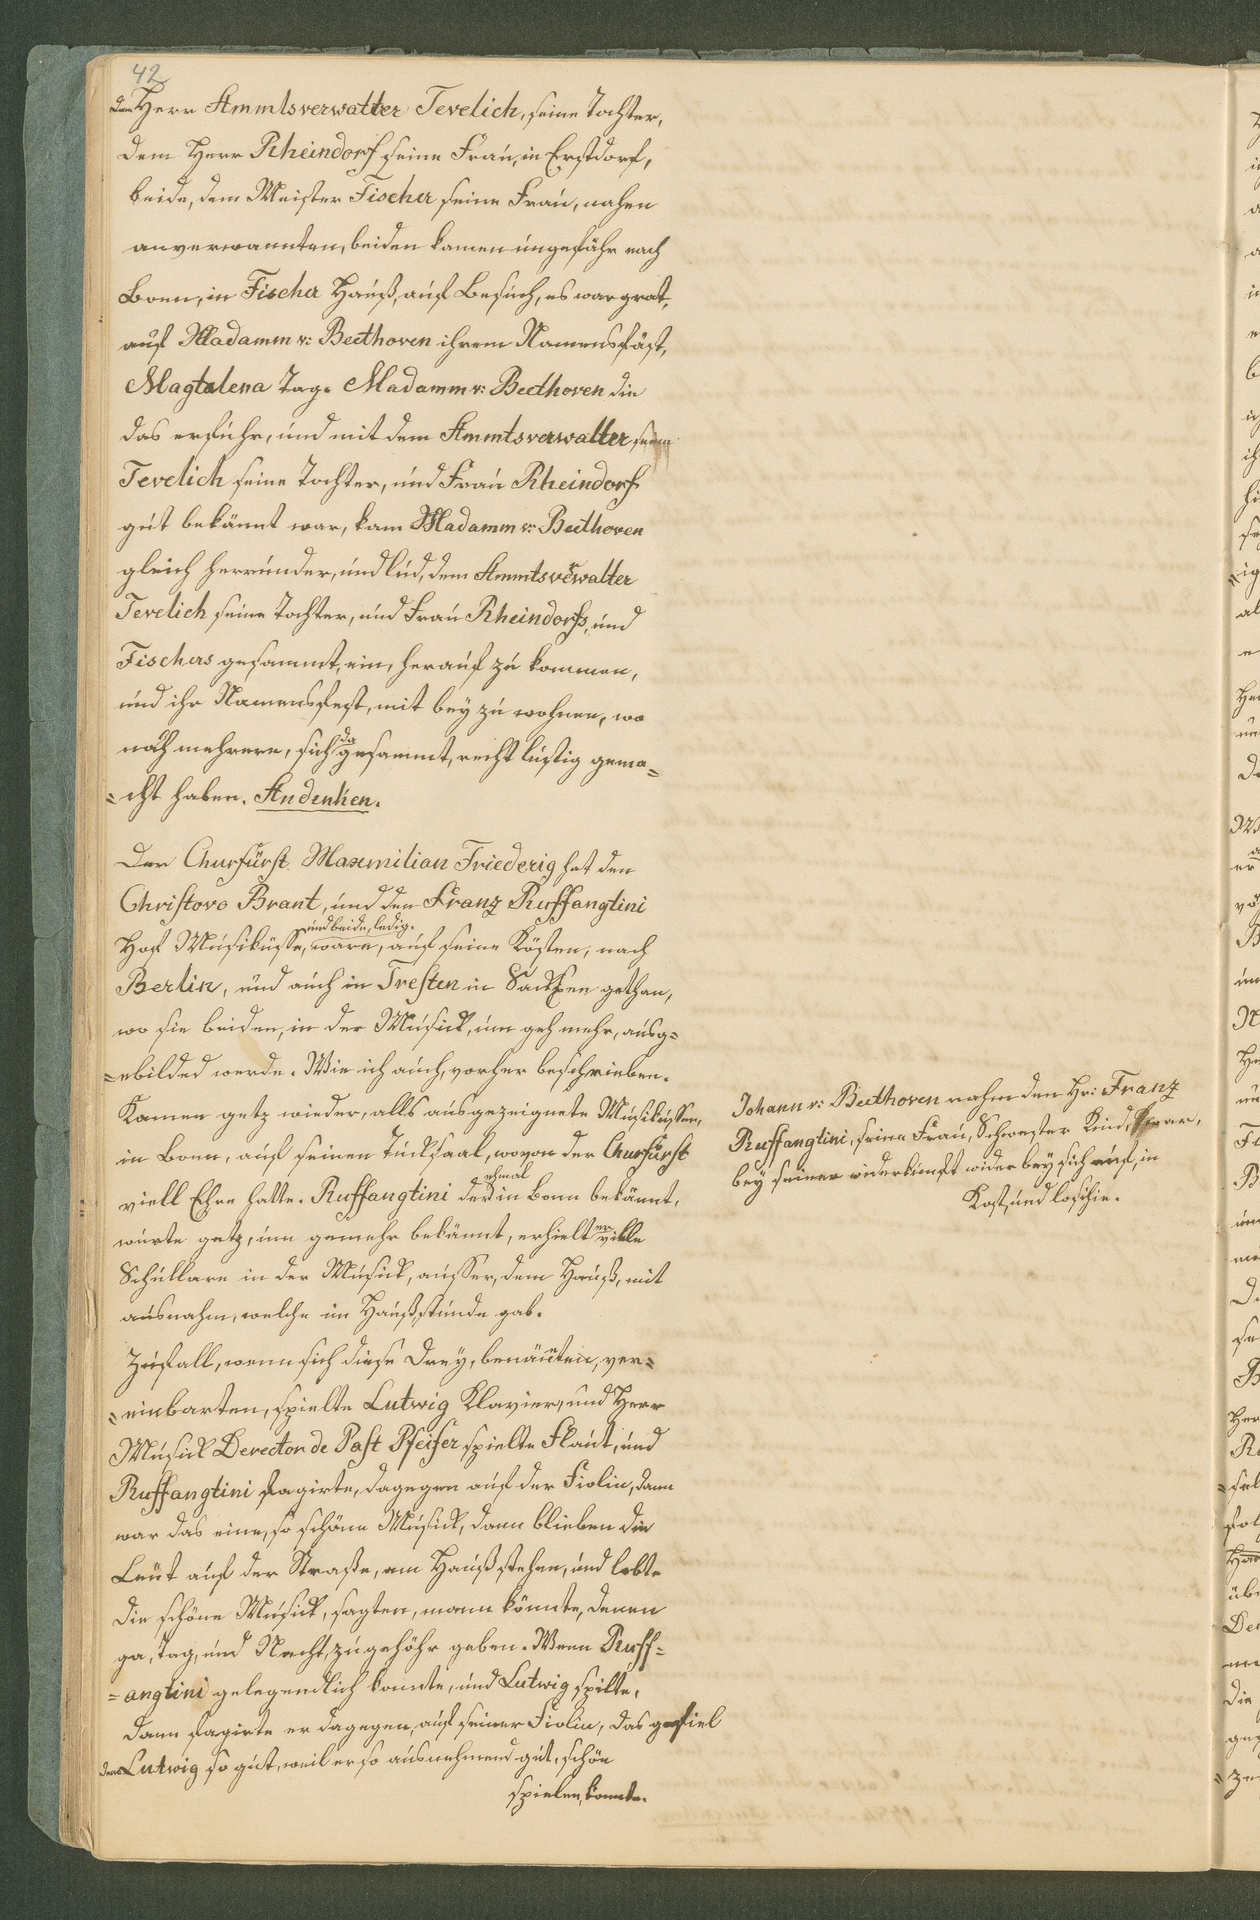 42
dem Herr Ammtsverwatter Tevelich, seine Tochter,
dem Herr Rheindorf seine Frau, in Erstdorf,
beide, dem Meister Fischer seine Frau, nahen
anverwannten, beiden kamen ungefähr nach
Bonn, in Fischer Hauß, auf Besuch, es war grat,
auf Madamm v: Beethoven ihrem Namensfäst,
Magtalena Tag. Madamm v: Beethoven die
das erfuhr, und mit dem Ammtsverwalter sein
Tevelich seine Tochter, und Frau Rheindorf
gut bekännt war, kam Madamm v: Beethoven
gleich herrunder, und lud, dem Ammtsverwalter
Tevelich seine Tochter, und Frau Rheindorfs, und
Fischers gesammt, ein, herauf zu kommen,
und ihr Namensfest, mit bey zu wohnen, wo
noch mehrere, sich da gesammt, recht lustig gema=
=cht haben. Andenken.
Der Churfürst Maxmilian Friederig hat den
Christovo Brant, und den Franz Ruffangtini
Hof Musikusse, ware, und beide, ledig. auf seine Kösten, nach
Berlin, und auch in Tresten in Sacksen gethan,
wo sie beiden, in der Musick, um geh mehr, ausg=
=ebilded werde. Wie ich auch, vorher beschrieben.
Kamen getz wieder, alls ausgezeignete Musikussen,
in Bonn, auf seinen Tucksaal, wovon der Churfürst
viell Ehre hatte. Ruffangtini der ehmal in Bonn bekännt,
wurte getz, um gemehr bekännt, erhielt er vielle
Schullare in der Musick, ausser, dem Hauß, mit
ausnahm, welche im Hauß, stunde gab.
Zufall, wenn sich diese Drey, benänten, ver=
=einbarten, spielte Lutwig Klavier, und Herr
Musick Derector de Past Pfeifer spielte Flaut, und
Ruffangtini fagirte, dagegen auf der Fiolin, dann
war das eine, so schöne Musick, dann blieben die
Leut auf der Straße, am Hauß stehen, und lobte
die schöne Musick, sagten, mann könnte, denen
ga, Tag, und Nacht, zugehöhr geben. Wenn Ruff=
=angtini gelegendlich konnte, und Lutwig spilte,
dann fagirte er dagegen, auf seiner Fiolin, das gefiel
dem Lutwig so gut, weil er so ausnehmend gut, schön
spielen, konnte.
Johann v: Beethoven nahm den Hr: Franz
Ruffangtini, seine Frau, Schwester Kind, war,
bey seiner widerkunft wider bey sich auf, in
Kost, und loschie.